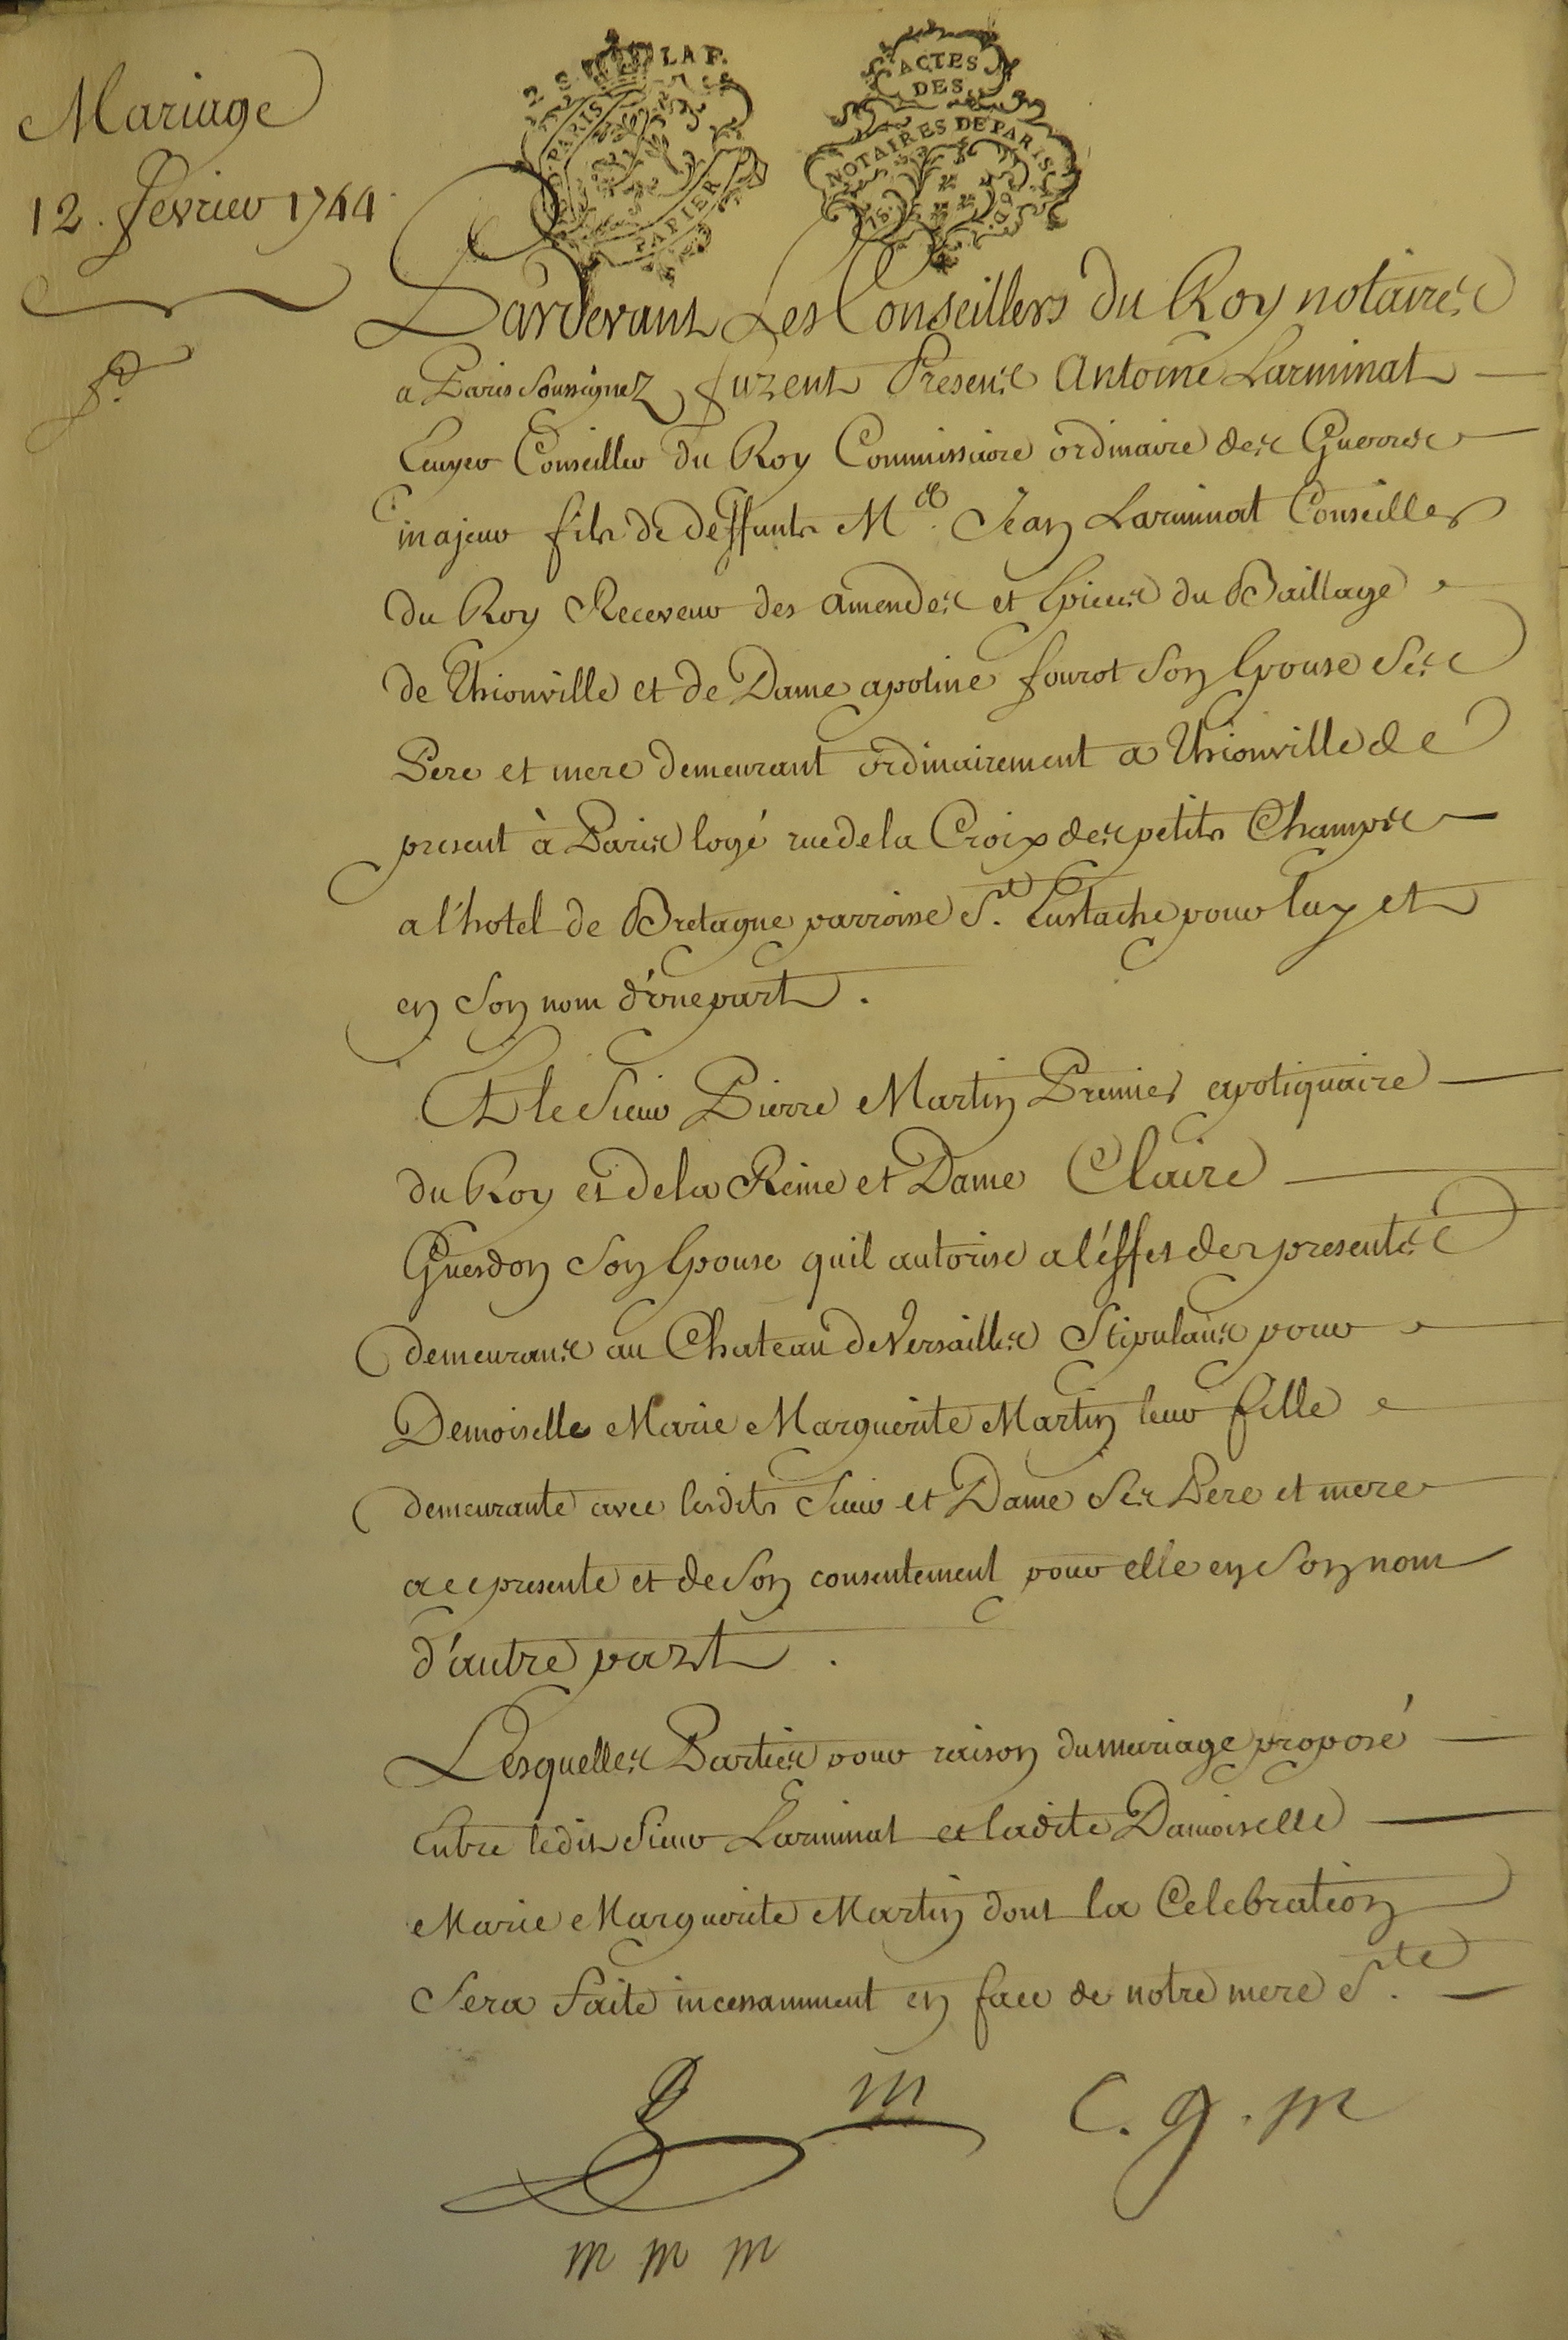 Mariage
12. fevrier 1744
LA F.
PARIS
PAPIER
ACTES
DES
NOTAIRES DE PARIS
Pardevant Les Conseillers du Roy notaires
a Paris Soussignez furent Presens Antoine Larminat
Ecuyer Conseiller du Roy Commissaire ordinaire des Guerres
majeur fils de deffunts Me. Jean Larminat Conseiller
du Roy Receveur des amendes et Epices du Baillage
de Thionville et de Dame apoline fourot Son Epouse Ses
Pere et mere demeurant ordinairement a Thionville de
present à Paris logé rue de la Croix des petits Champs
a l'hotel de Bretagne parroisse St. Eustache pour luy et
en Son nom d'une part.
Et le Sieur Pierre Martin Premier apotiquaire
du Roy et de la Reine et Dame Claire
Guesdon Son Epouse quil autorise a l'éffet des presentes
demeurans au Chateau de Versailles Stipulans pour
Demoiselle Marie Marguerite Martin leur fille
demeurante avec lesdits Sieur et Dame Ses Pere et mere
a ce presente et de Son consentement pour elle en Son nom
d'autre part.
Lesquelles Parties pour raison du mariage proposé
Entre ledit Sieur Larminat et ladite Damoiselle
Marie Marguerite Martin dont la Celebration
Sera faite incessamment en face de notre mere Ste.
m C. g. m
m m m